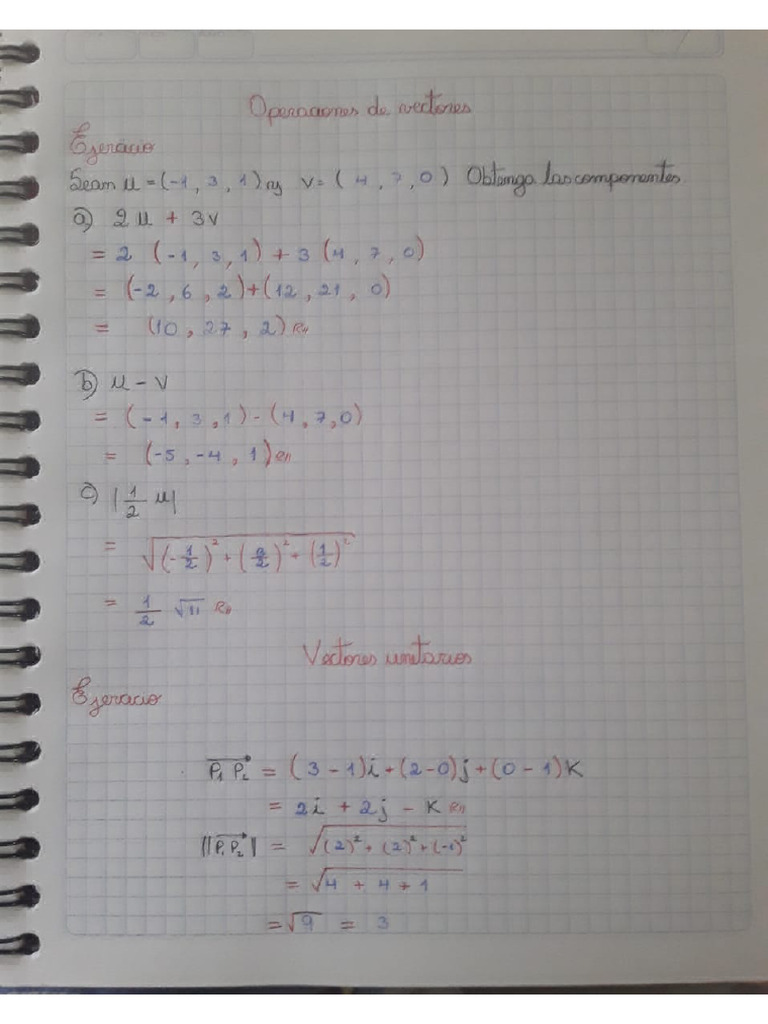 Operaciones de vectores
Ejercicio
Sean u = (-1, 3, 1) y v = (4, 7, 0) Obtenga las componentes
a) 2u + 3v
= 2 (-1, 3, 1) + 3 (4, 7, 0)
= (-2, 6, 2) + (12, 21, 0)
= (10, 27, 2) R//
b) u - v
= (-1, 3, 1) - (4, 7, 0)
= (-5, -4, 1) R//
c) |1/2 u|
= √((-1/2)² + (3/2)² + (1/2)²)
= 1/2 √11 R//
Vectores unitarios
Ejercicio
P₁P₂ = (3 - 1)i + (2 - 0)j + (0 - 1)K
= 2i + 2j - K R//
||P₁P₂|| = √((2)² + (2)² + (-1)²)
= √(4 + 4 + 1)
= √9 = 3